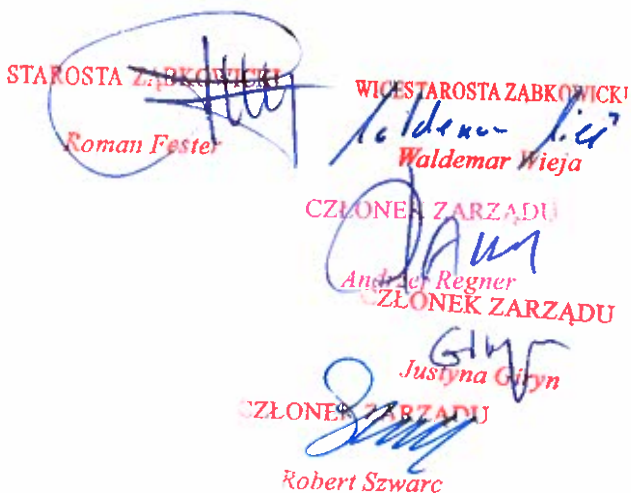 STAROSTA ZĄBKOWICKI
Roman Fester
WICESTAROSTA ZĄBKOWICKI
Waldemar Wieja
CZŁONEK ZARZĄDU
Andrzej Regner
CZŁONEK ZARZĄDU
Justyna Giryn
CZŁONEK ZARZĄDU
Robert Szwarc